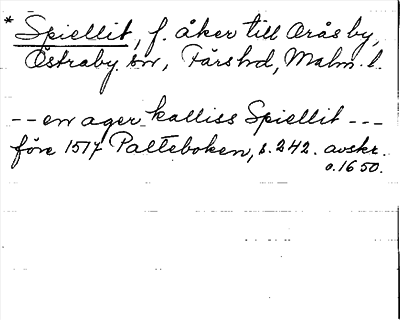 * Spiellit, f. åker till Orås by,
Östraby sn, Färs hd, Malm. l.
-- en ager kalliss Spiellit ---
före 1517 Palteboken, s. 242. avskr.
o. 1650.